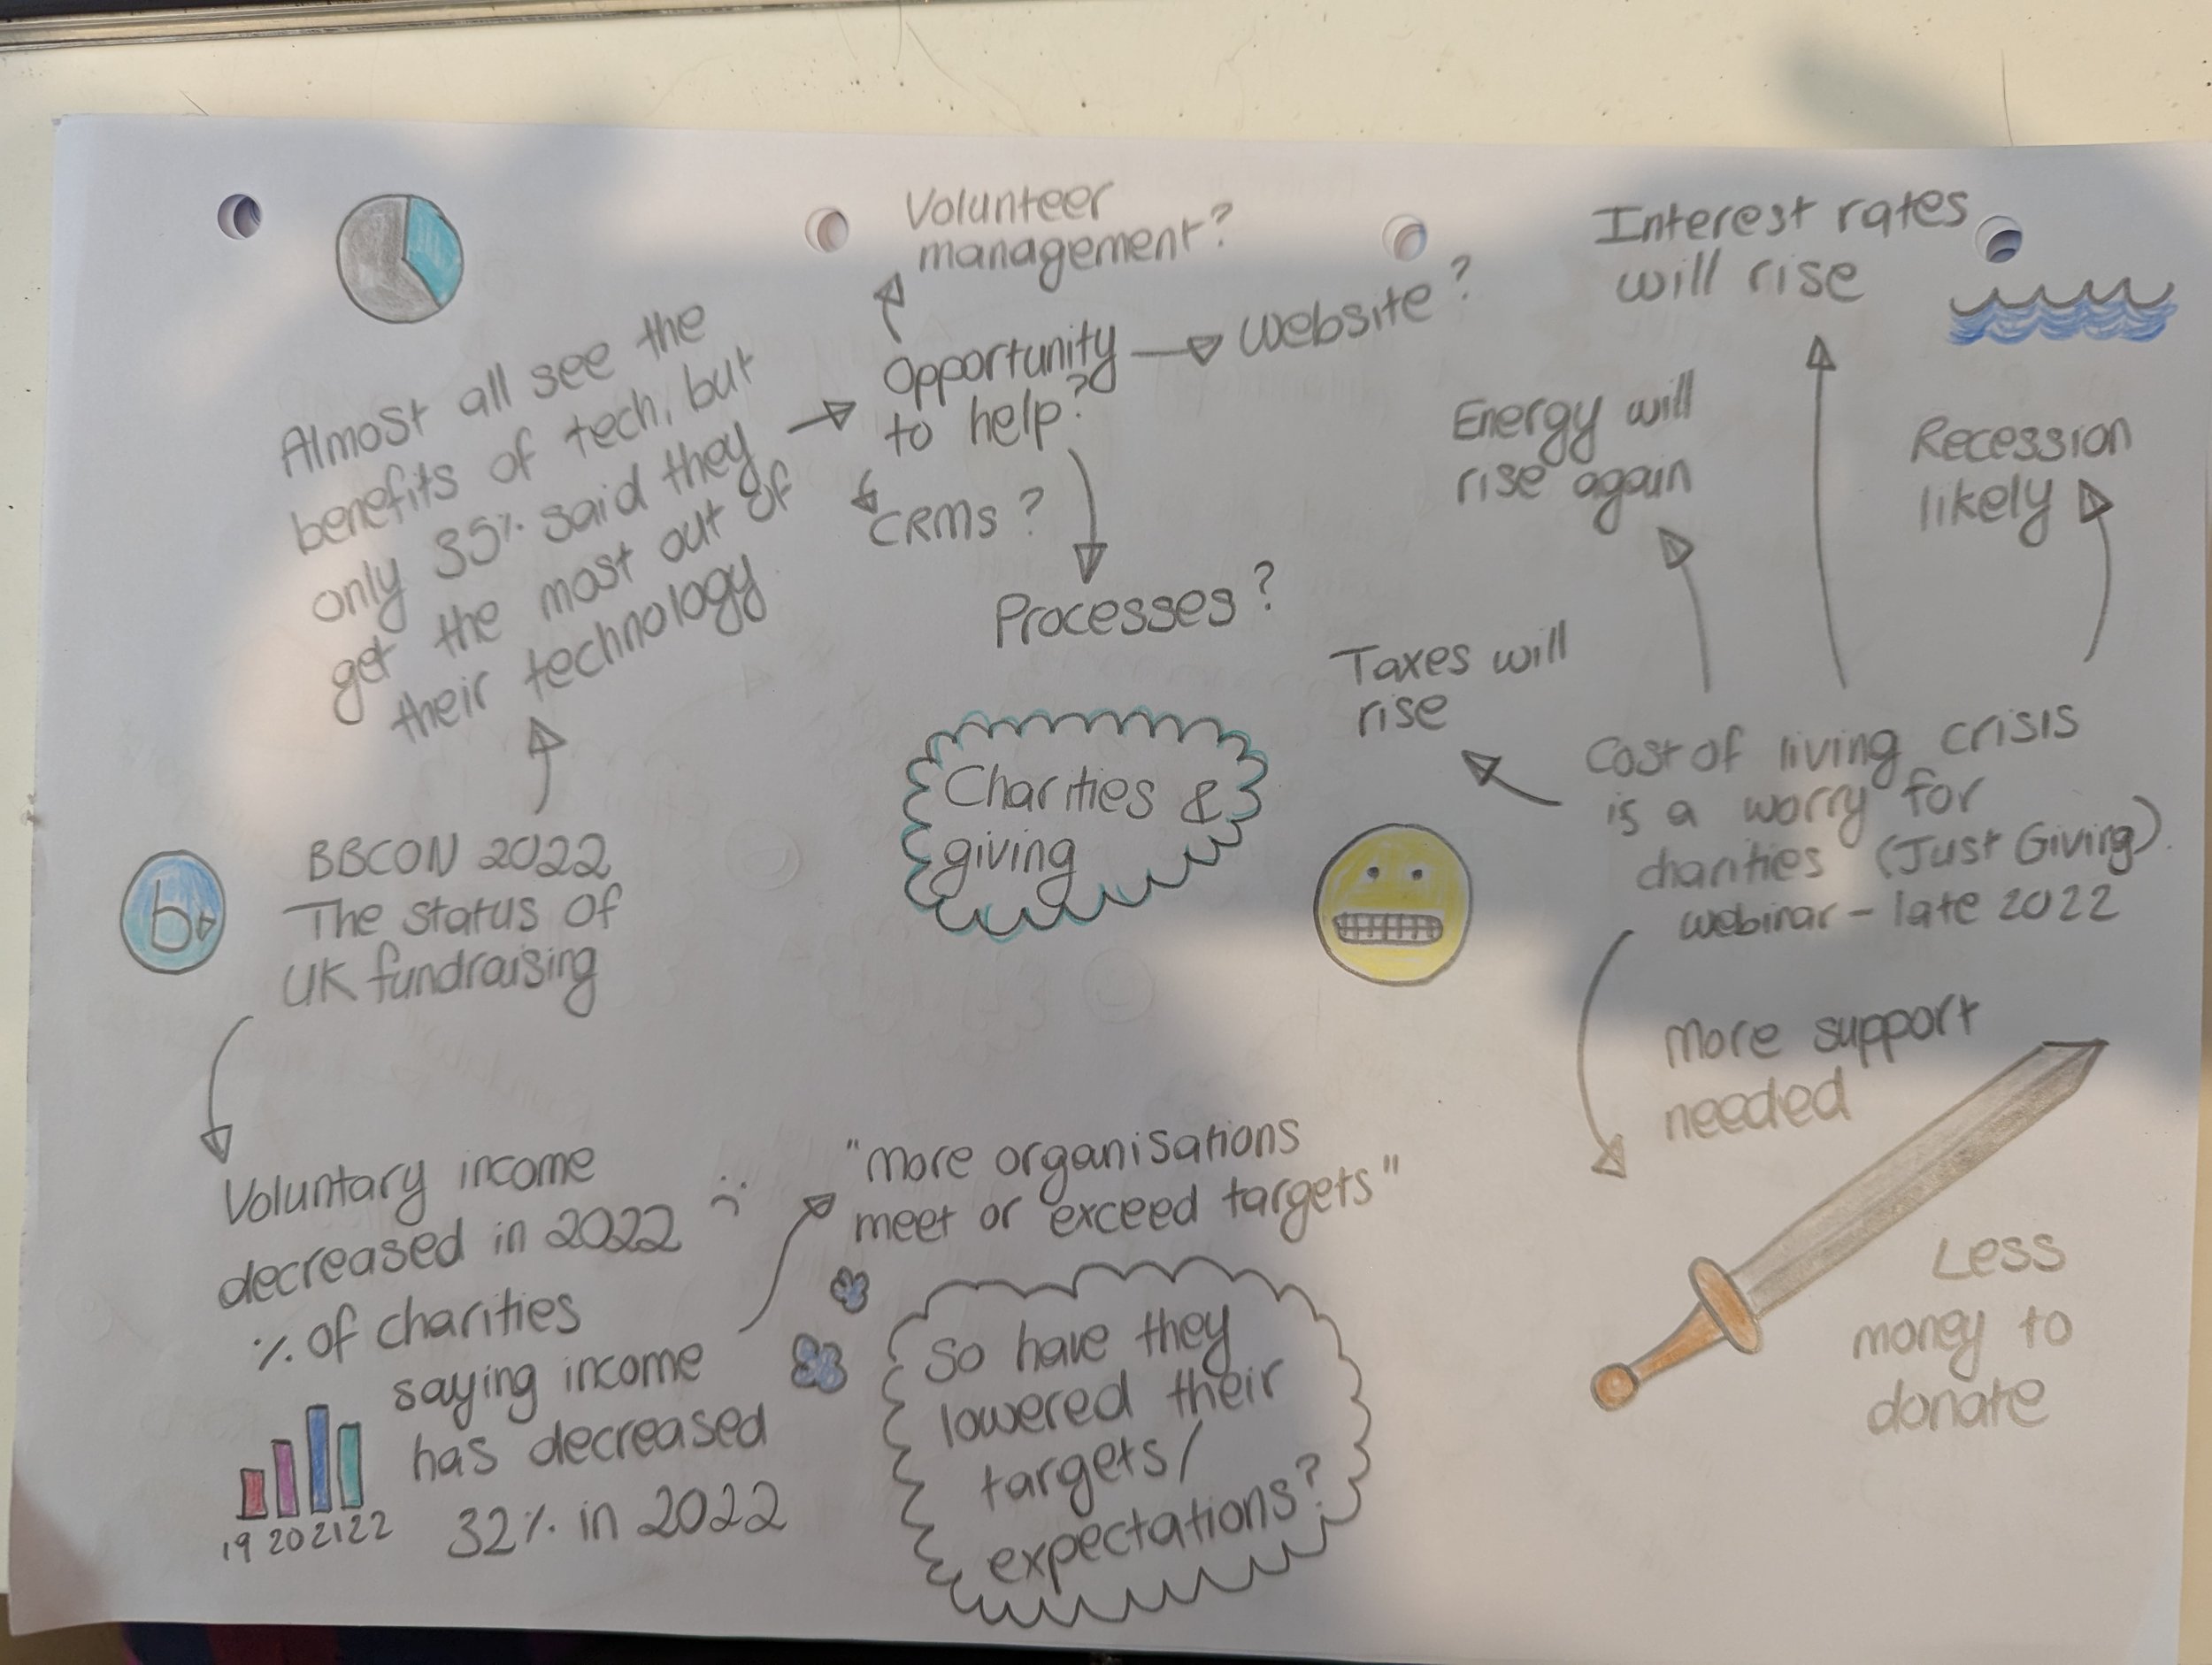 Volunteer
management?
Opportunity
to help?
Website?
CRMs?
Processes?
Almost all see the
benefits of tech, but
only 35% said they
get the most out of
their technology
BBCON 2022
The status of
UK fundraising
b
Voluntary income
decreased in 2022 :(
% of charities
saying income
has decreased
32% in 2022
19 20 21 22
"More organisations
meet or exceed targets"
So have they
lowered their
targets/
expectations?
Charities &
giving
Interest rates
will rise
Energy will
rise again
Recession
likely
Taxes will
rise
Cost of living crisis
is a worry for
charities (Just Giving).
webinar - late 2022
More support
needed
Less
money to
donate